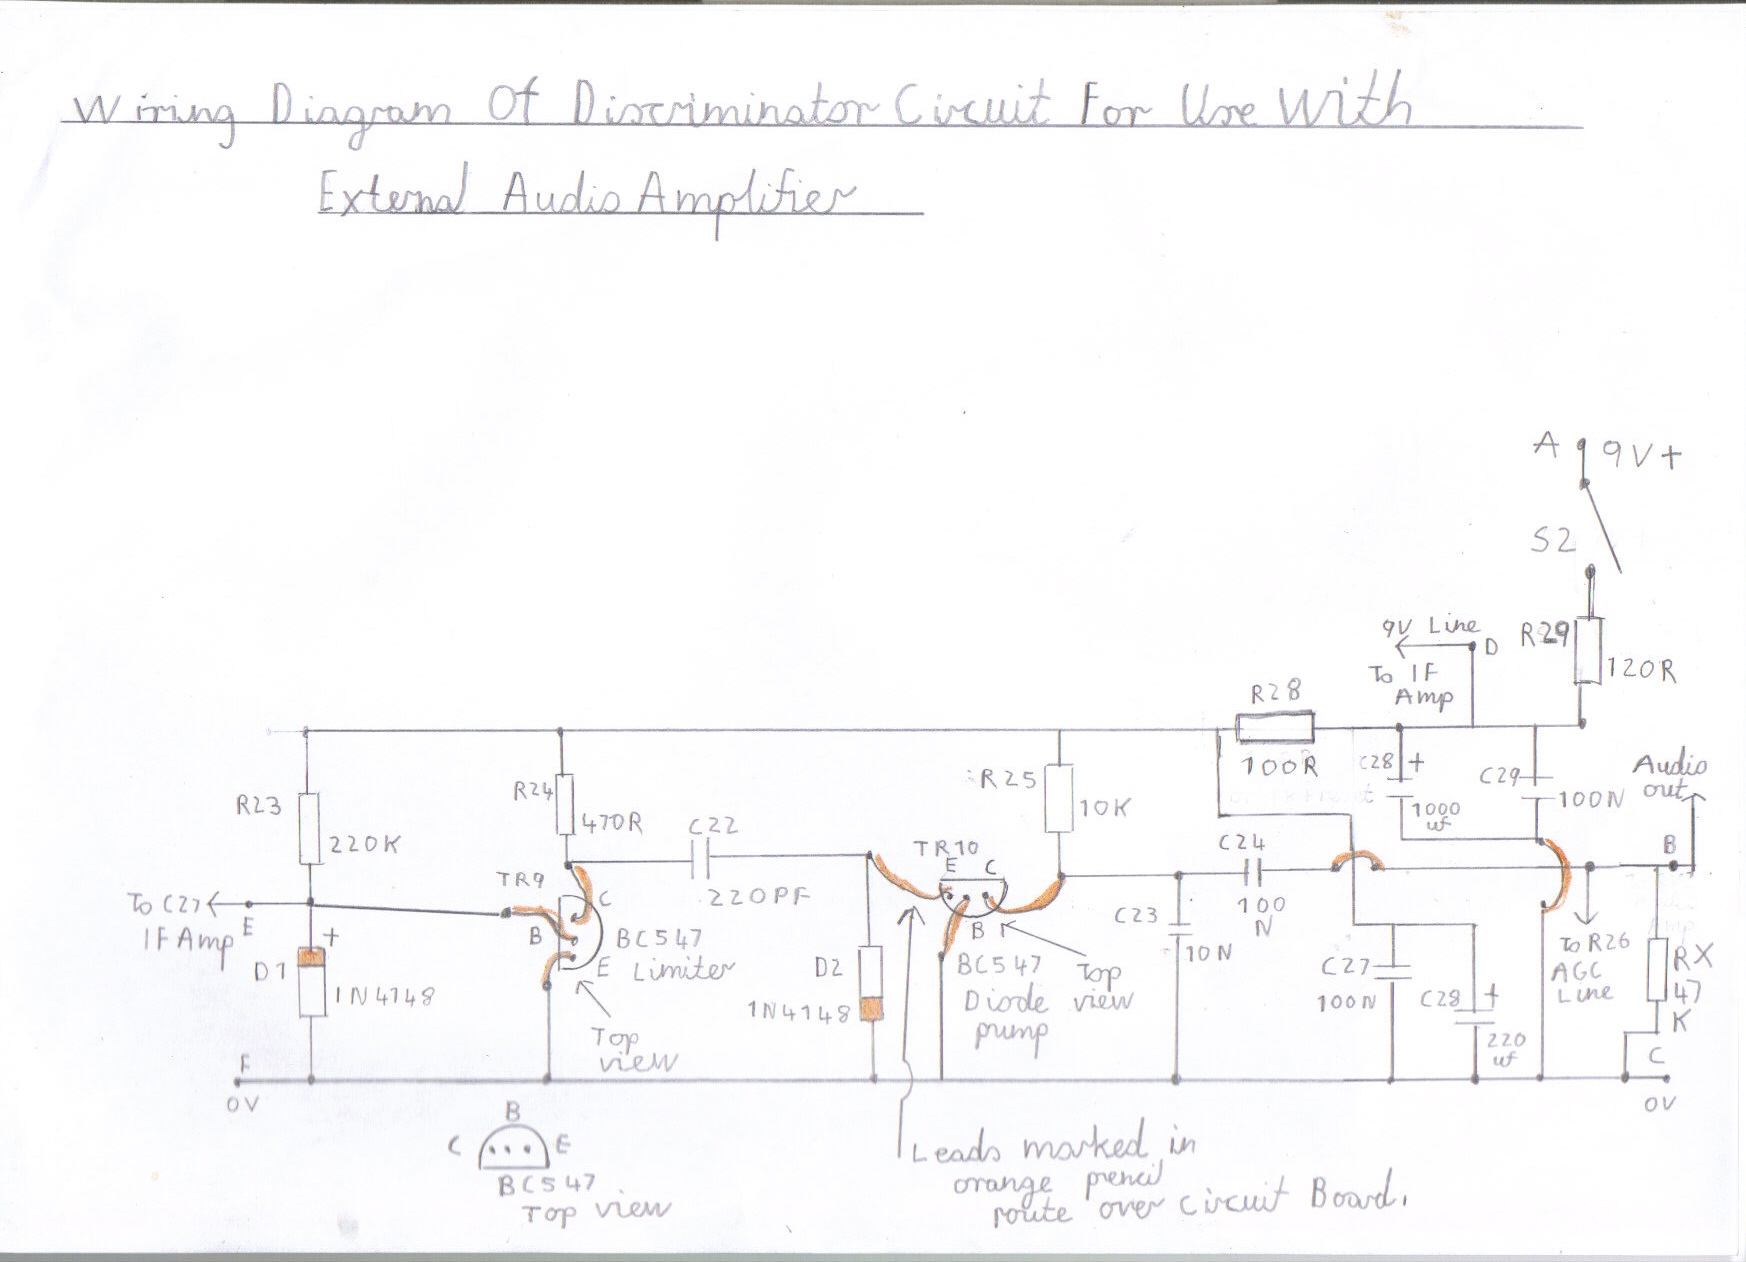 Wiring Diagram Of Discriminator Circuit For Use With
External Audio Amplifier
A 9V+
S2
9V Line D
To IF
Amp
R29
120R
R28
100R
C28 +
1000
uf
C29
100N
Audio
out
B
R23
220K
R24
470R
C22
220PF
R25
10K
TR9
C
B
E
BC547
Limiter
Top
view
TR10
E C
B
BC547
Diode
pump
Top
view
C24
100
N
C23
10N
To C21
IF Amp
E
+
D1
1N4148
D2
1N4148
C27
100N
C28 +
220
uf
To R26
AGC
Line
RX
47
K
C
F
0V
0V
B
C E
BC547
Top view
Leads marked in
orange pencil
route over circuit Board.